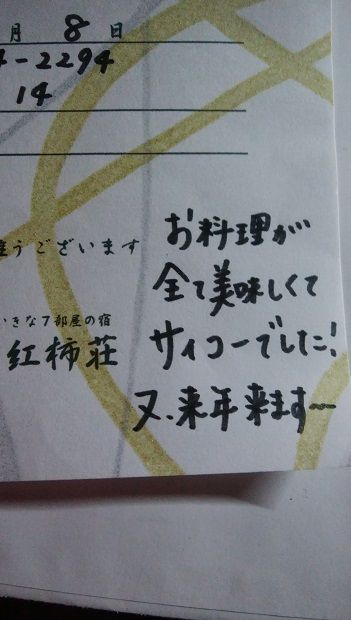 月 8 日
4-2294
14
お料理が
全て美味しくて
うございます
きな7部屋の宿
サイコーでした!
紅柿荘
又、来年来ます〜